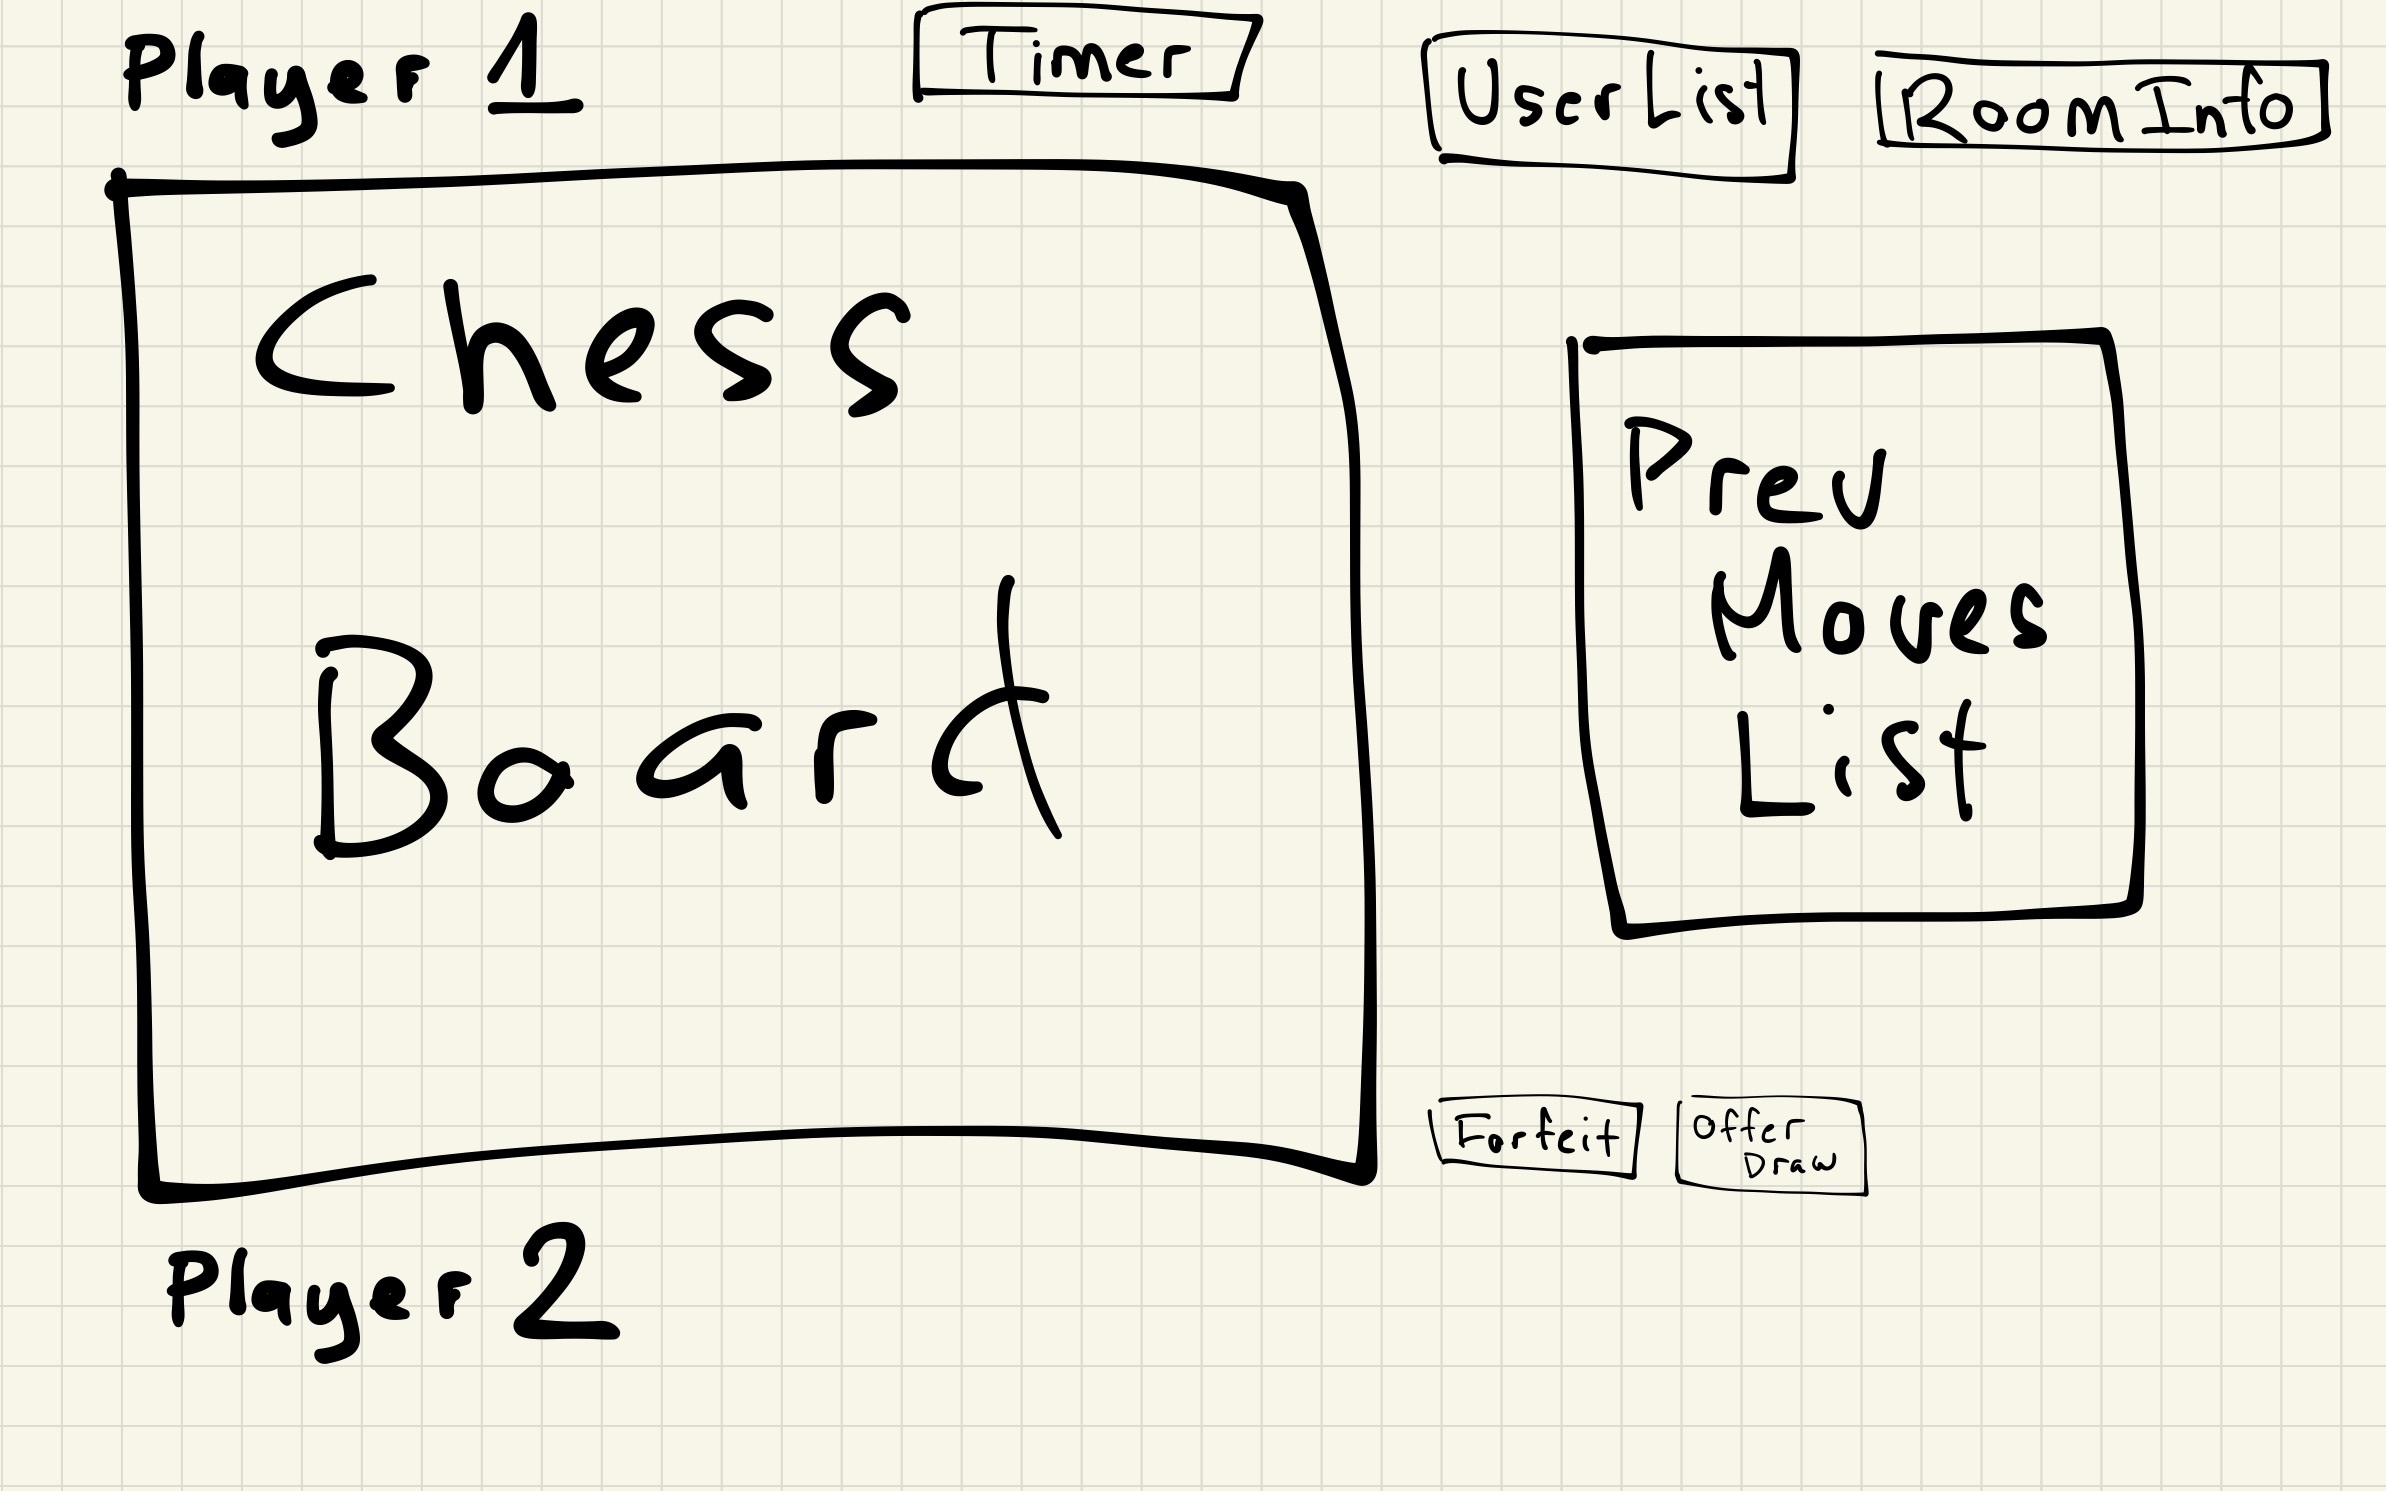 Player 1
Timer
UserList
RoomInfo
Chess
Board
Prev
Moves
List
Forfeit
Offer
Draw
Player 2